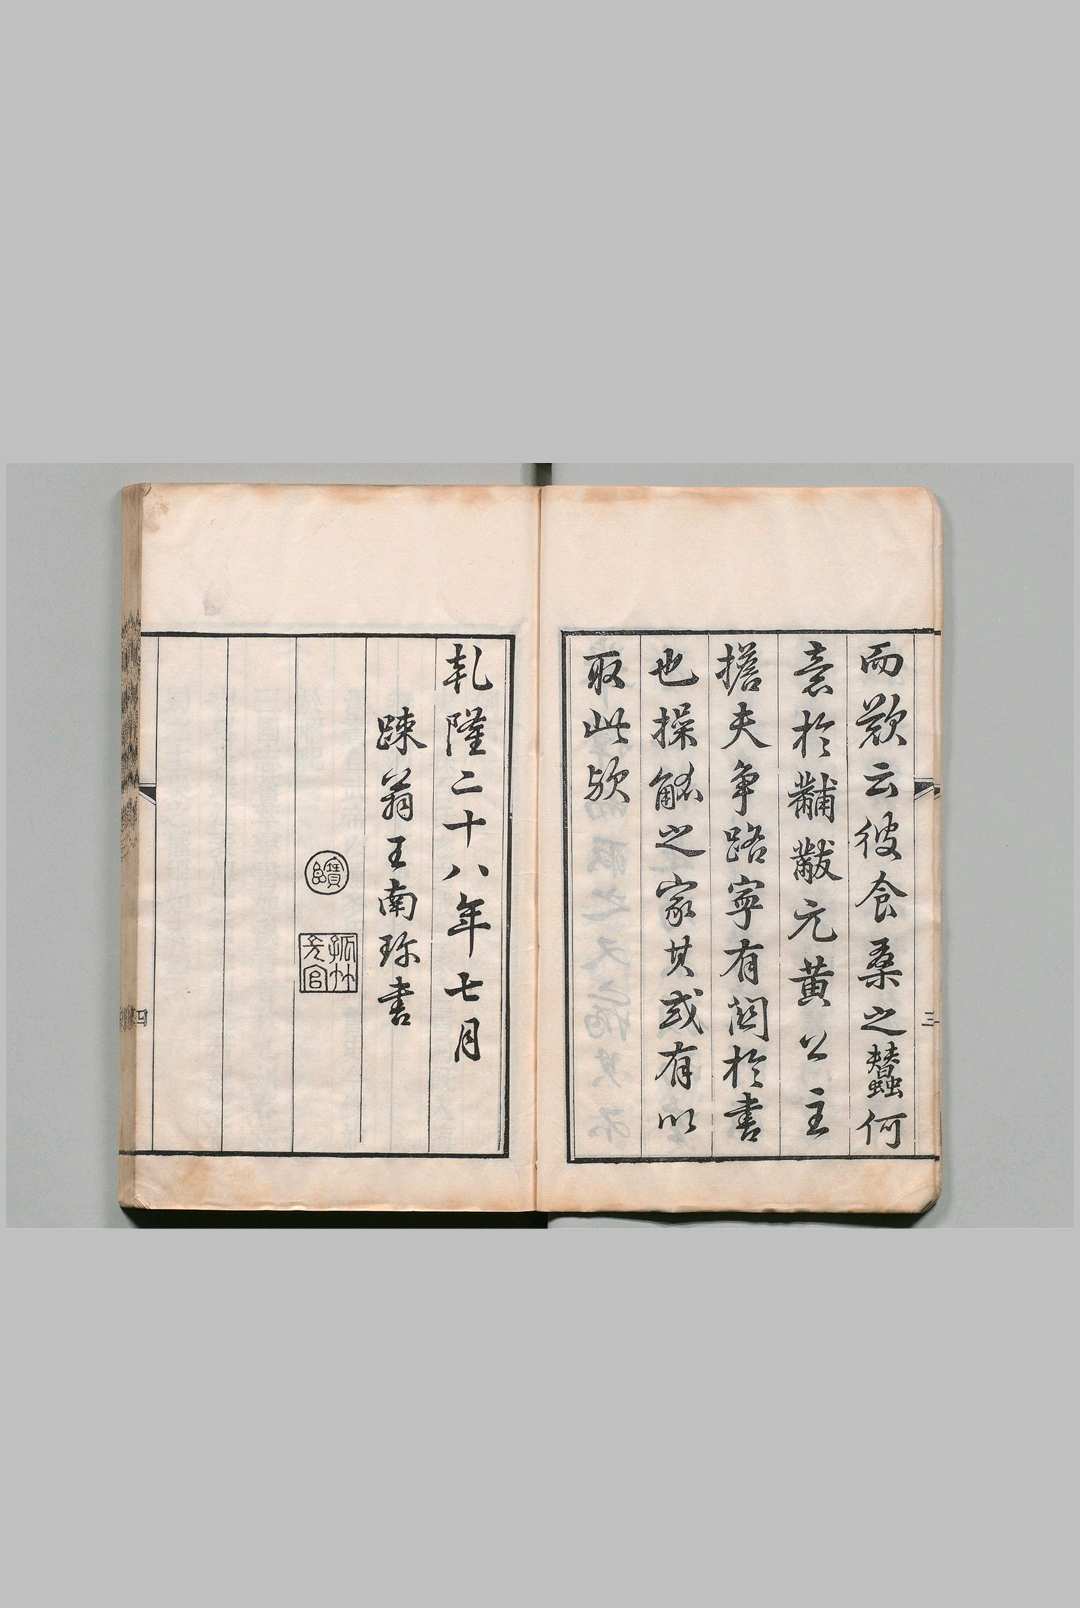 而歎云彼食桑之蠶何
意於黼黻元黃公主
擔夫爭路寧有關於書
也操觚之家其或有以
取此歟
三
乾隆二十八年七月
踈翁王南珍書
四